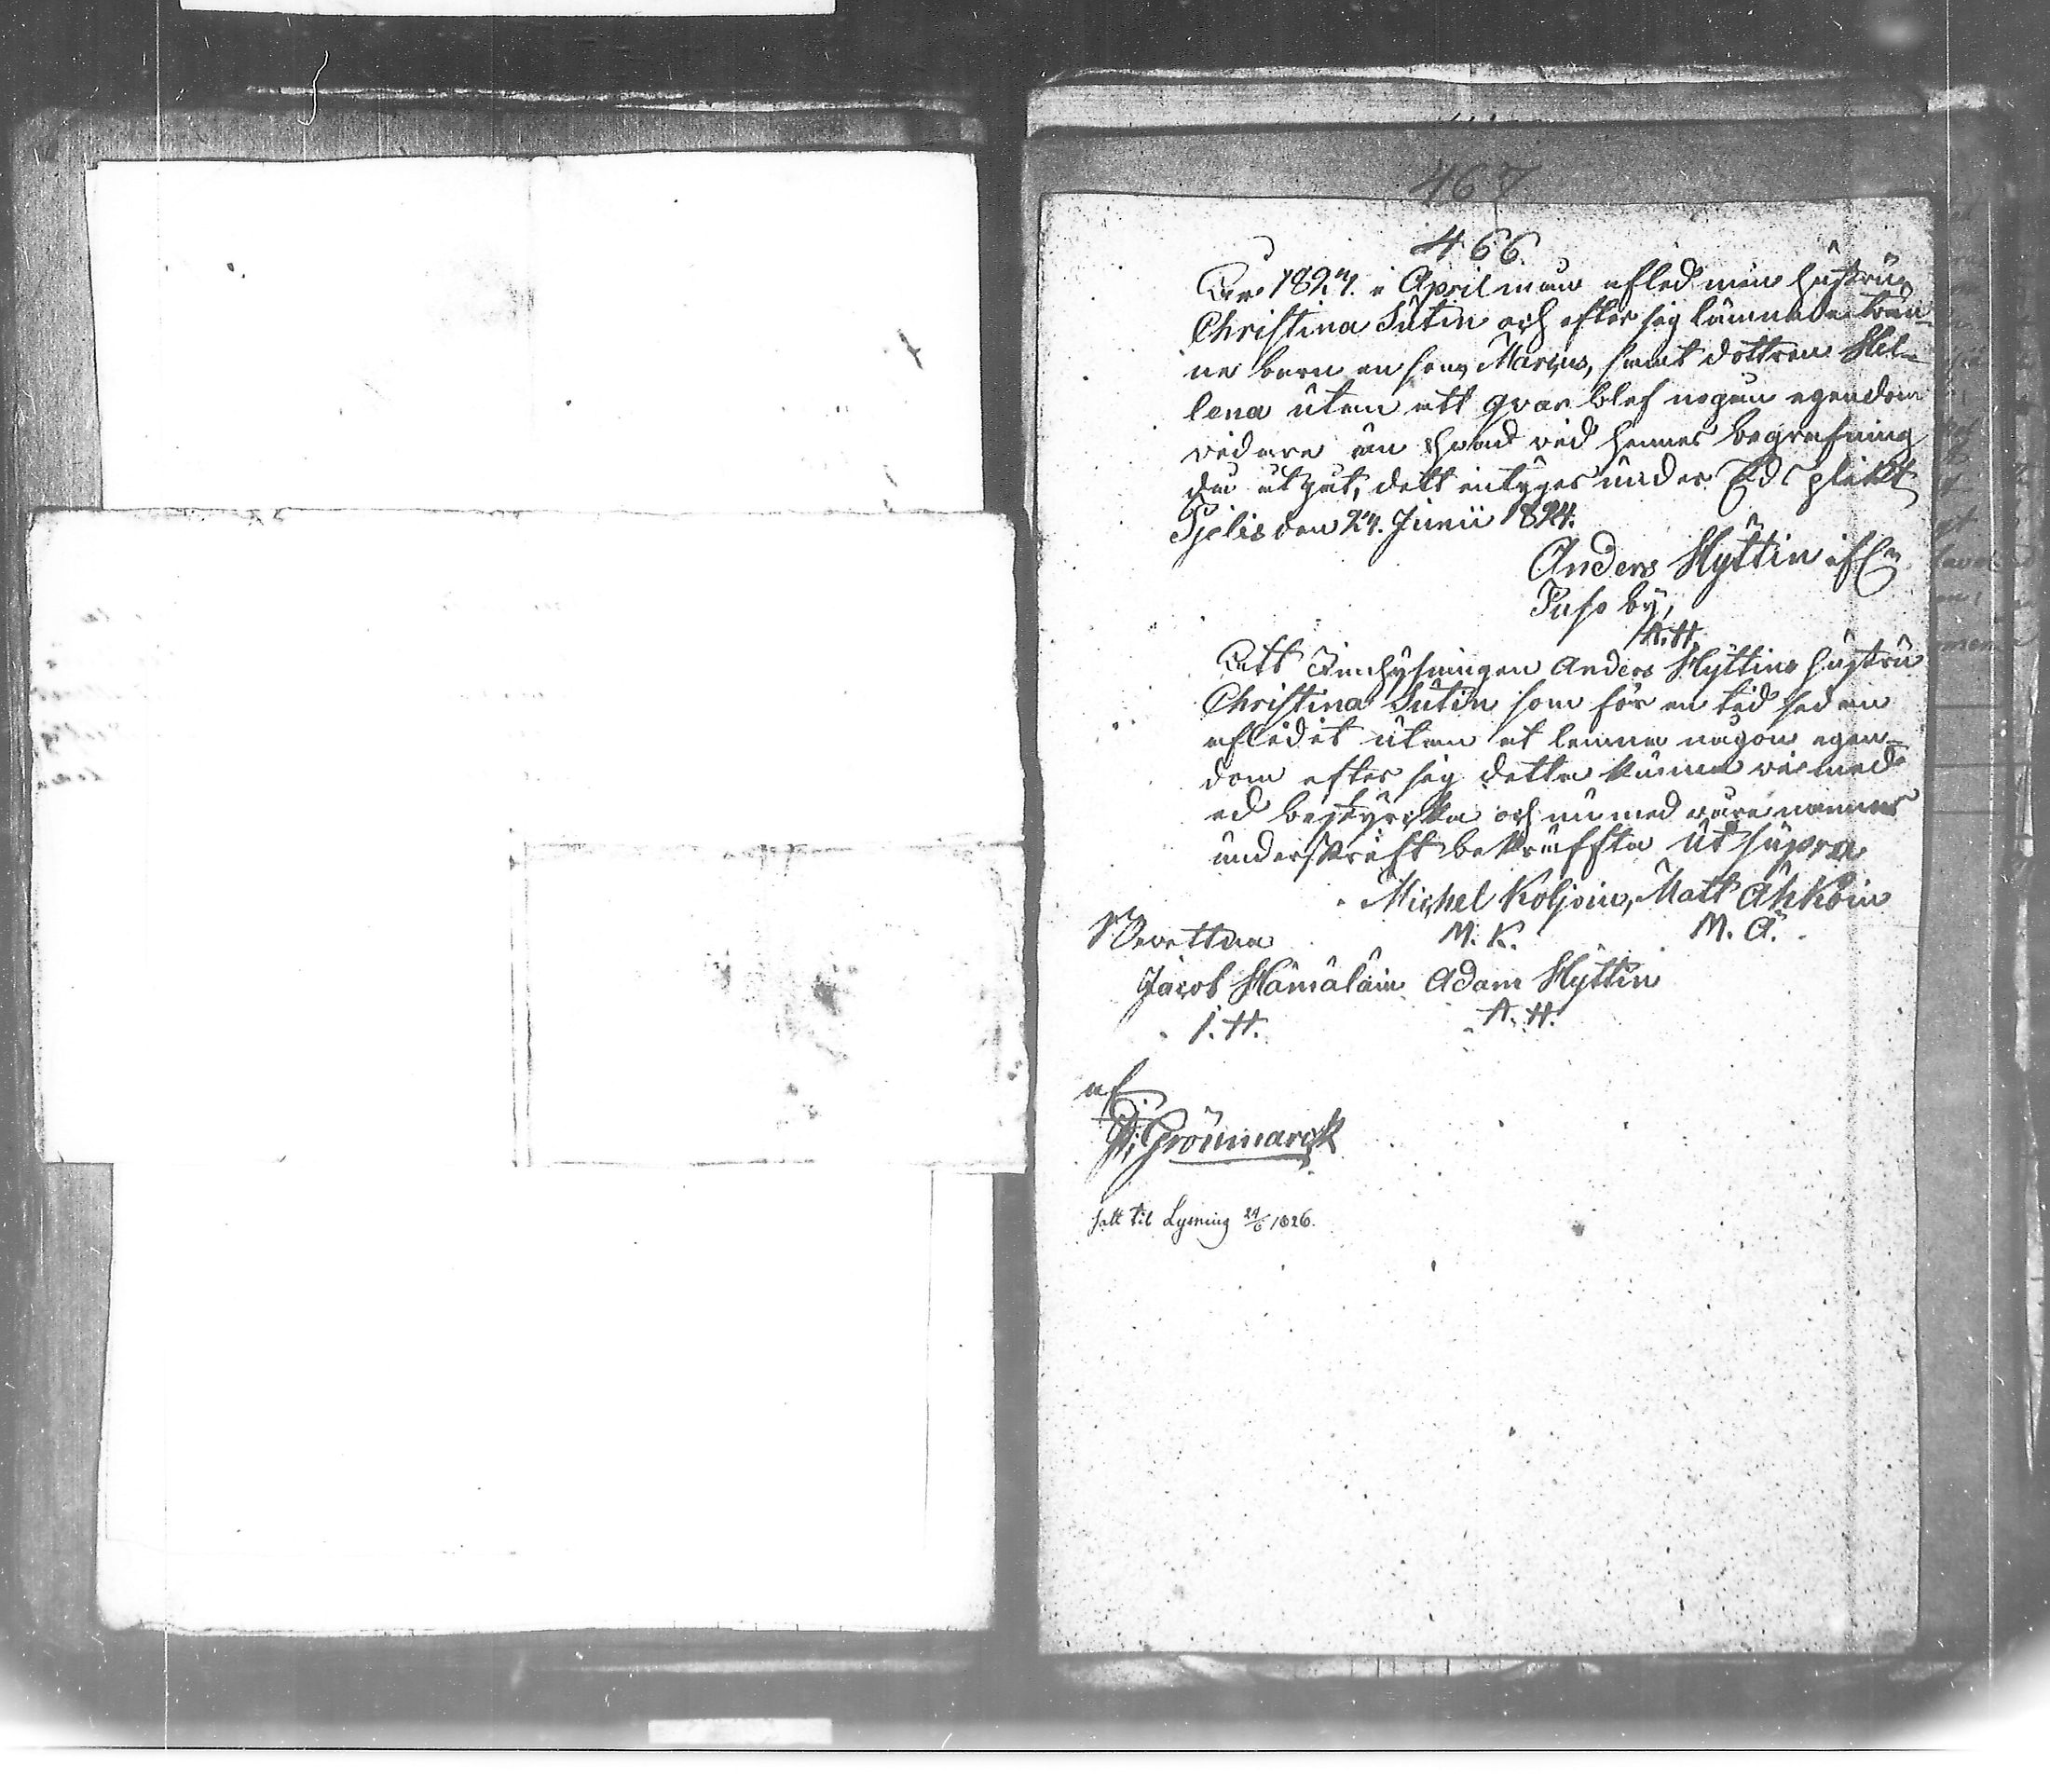 467
466.
År 1824. i April månn afled min hustru
Christina Sutin och efter sig lämnade trän-
ne barn en son, Marcus, samt dottren Hel-
lena utan att qvar blef någon egendom
vidare än hvad vid hennes begrafning
då utgåt, dett intyges under Eds plikt
Pjelis den 24. Junii 1824.
Anders Hyttin
Puso by,
A. H.
Att Inhysningen Anders Hyttins hustru
Christina Sutin som för en tid sedan
aflidit utan at lemna någon egen-
dom efter sig detta kunna vi med
ed bestyrcka och nu med våre namns
underskrift bekräffta Ut supra
Michel Koljoin, Matts Ahkoin
M. K. M. A.
Jacob Hämäläin Adam Hyttin
I. H. A. H.
af
Grönmarck
satt til Lysning 24/6 1826.